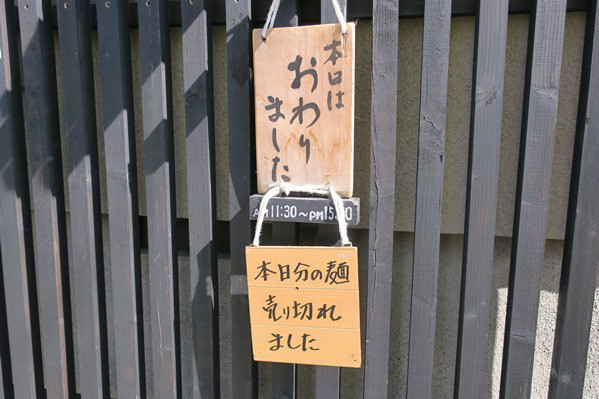 本日は
おわり
ました
AM11:30～PM15:00
本日分の麺
売り切れ
ました